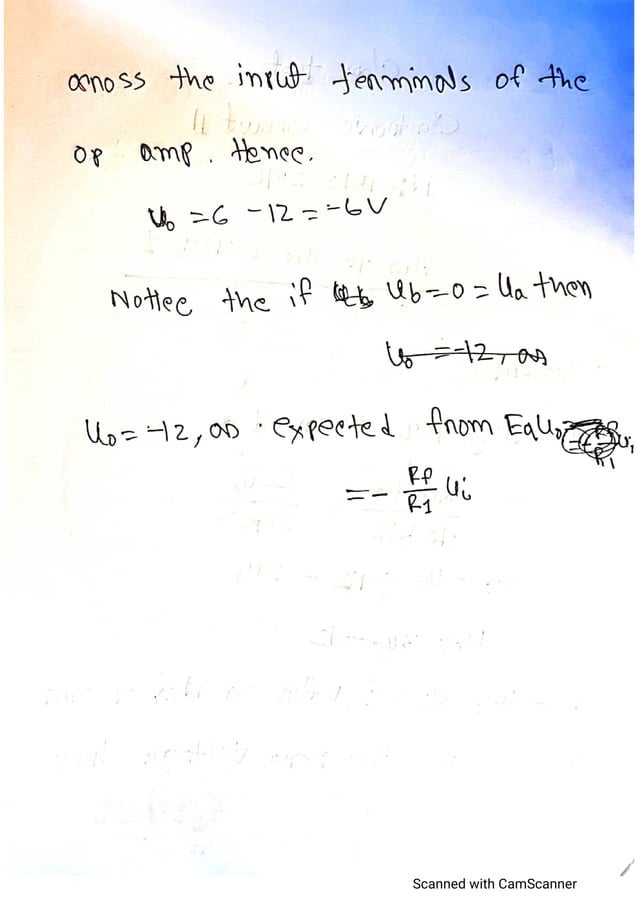 across the input terminals of the
op amp. Hence.
u₀ = 6 - 12 = -6V
Notice the if u_b = 0 = u_a then
u₀ = -12, as
u₀ = -12, as expected from Eq u₀
= - Rf/R1 ui
Scanned with CamScanner